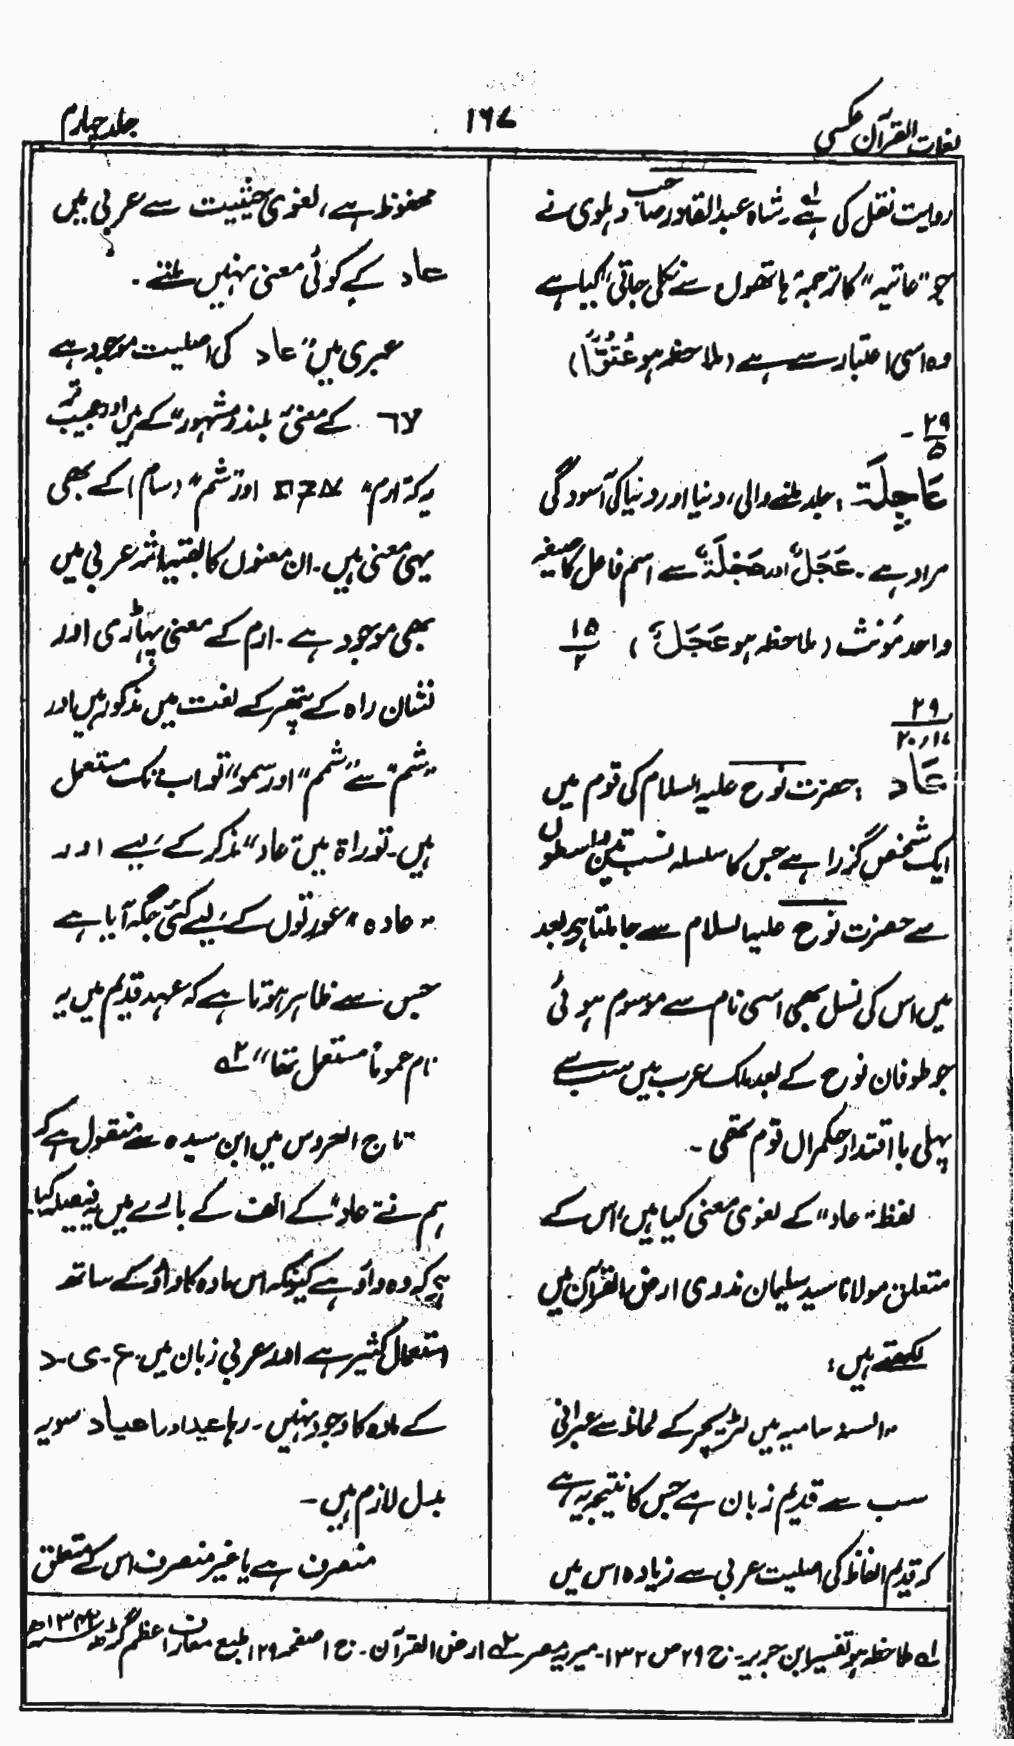 لغات القرآن عکسی
۱۶۷
جلد چہارم
روایت نقل کی ہے۔ شاہ عبدالقادر صاحب دہلوی نے
جو "عاتیہ" کا ترجمہ ہاتھوں سے نکلی جاتی" کیا ہے
وہ اسی اعتبار سے ہے (ملاحظہ ہو عُتُوًّا)
۲۹
۵
عَاجِلَۃَ : جلد ملنے والی، دنیا اور دنیا کی آسودگی
مراد ہے۔ عَجَلٌ اور عَجَلَۃٌ سے اسم فاعل کا صیغہ
واحد مؤنث (ملاحظہ ہو عَجَلَ) ۱۵
۲
۲۹
۲۰،۱۷
عَاد : حضرت نوح علیہ السلام کی قوم میں
ایک شخص گزرا ہے جس کا سلسلہ نسب تین واسطوں
سے حضرت نوح علیہ السلام سے جا ملتا ہے بعد
میں اس کی نسل بھی اسی نام سے موسوم ہوئی
جو طوفان نوح کے بعد ملک عرب میں سب سے
پہلی با اقتدار حکمراں قوم تھی۔
لفظ "عاد" کے لغوی معنی کیا ہیں، اس کے
متعلق مولانا سید سلیمان ندوی ارض القرآن میں
لکھتے ہیں:
"السنہ سامیہ میں لٹریچر کے لحاظ سے عبرانی
سب سے قدیم زبان ہے جس کا نتیجہ یہ ہے
کہ قدیم الفاظ کی اصلیت عربی سے زیادہ اس میں
محفوظ ہے، لغوی حیثیت سے عربی میں
عاد کے کوئی معنی نہیں ملتے۔
عبری میں "عاد کی اصلیت موجود ہے
کے معنی "بلند و مشہور" کے ہیں اور عجیب تر
یہ کہ "ارم" ارם اور "شم" (سام) کے بھی
یہی معنی ہیں۔ ان معنوں کا بقیہ اثر عربی میں
بھی موجود ہے۔ ارم کے معنی پہاڑی اور
نشان راہ کے پتھر کے لغت میں مذکور ہیں اور
"شم" سے "شمم" اور "سمو" تو اب تک مستعمل
ہیں۔ توراۃ میں "عاد" مذکر کے لیے اور
"عادہ" عورتوں کے لیے کئی جگہ آیا ہے
جس سے ظاہر ہوتا ہے کہ عہد قدیم میں یہ
نام عموماً مستعمل تھا" ۲ے
تاج العروس میں ابن سیدہ سے منقول ہے کہ
ہم نے عاد" کے الف کے بارے میں فیصلہ کیا
ہے کہ وہ واؤ ہے کیونکہ اس مادہ کا واؤ کے ساتھ
استعمال کثیر ہے اور عربی زبان میں ع۔ی۔د
کے مادہ کا وجود نہیں۔ رہا عید اور اعیاد سو یہ
بدل لازم ہیں۔
منصرف ہے یا غیر منصرف اس کے متعلق
۱ے ملاحظہ ہو تفسیر ابن جریر۔ ج ۲۹ ص ۱۳۲۔ میریہ مصر ۲ے ارض القرآن۔ ج ۱ صفحہ ۱۲۹ طبع معارف اعظم گڑھ ۱۳۴۲ھ